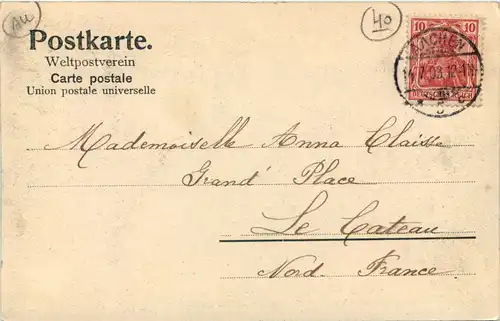 Au
40
Postkarte.
Weltpostverein
Carte postale
Union postale universelle
10 10
AACHEN
DEUTSCHES REICH
5
Mademoiselle Anna Claisse
Grand' Place
Le Cateau
Nord. France